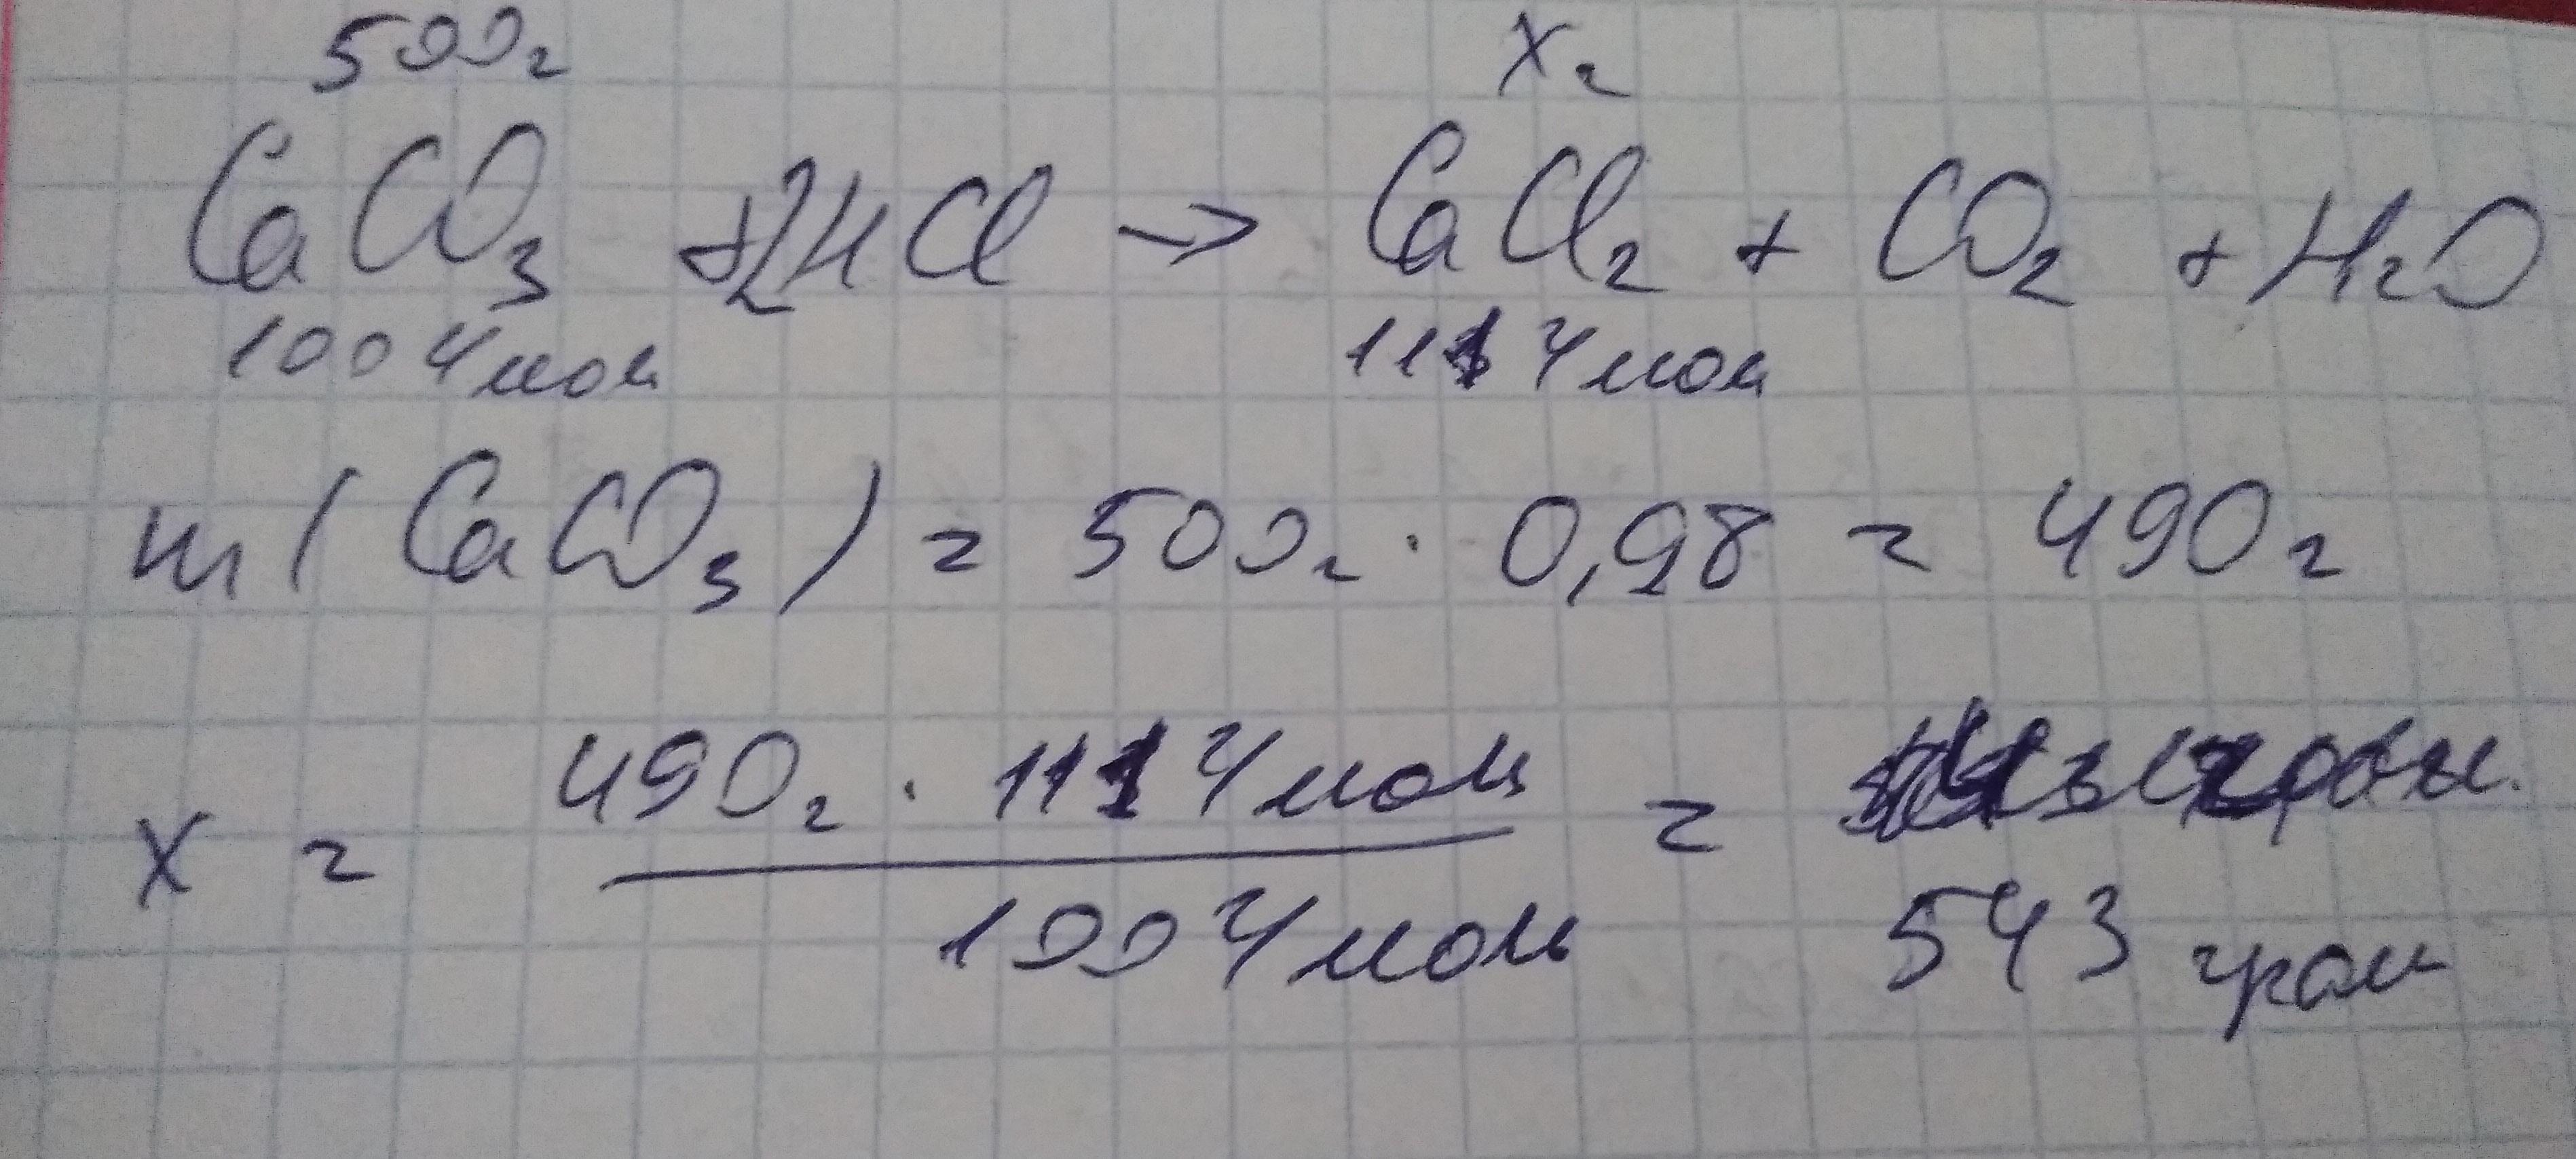 500г Xг
CaCO₃ + 2HCl → CaCl₂ + CO₂ + H₂O
100 г/моль 111 г/моль
m(CaCO₃) = 500г · 0,98 = 490г
490г · 111 г/моль
X = =
100 г/моль 543 грам